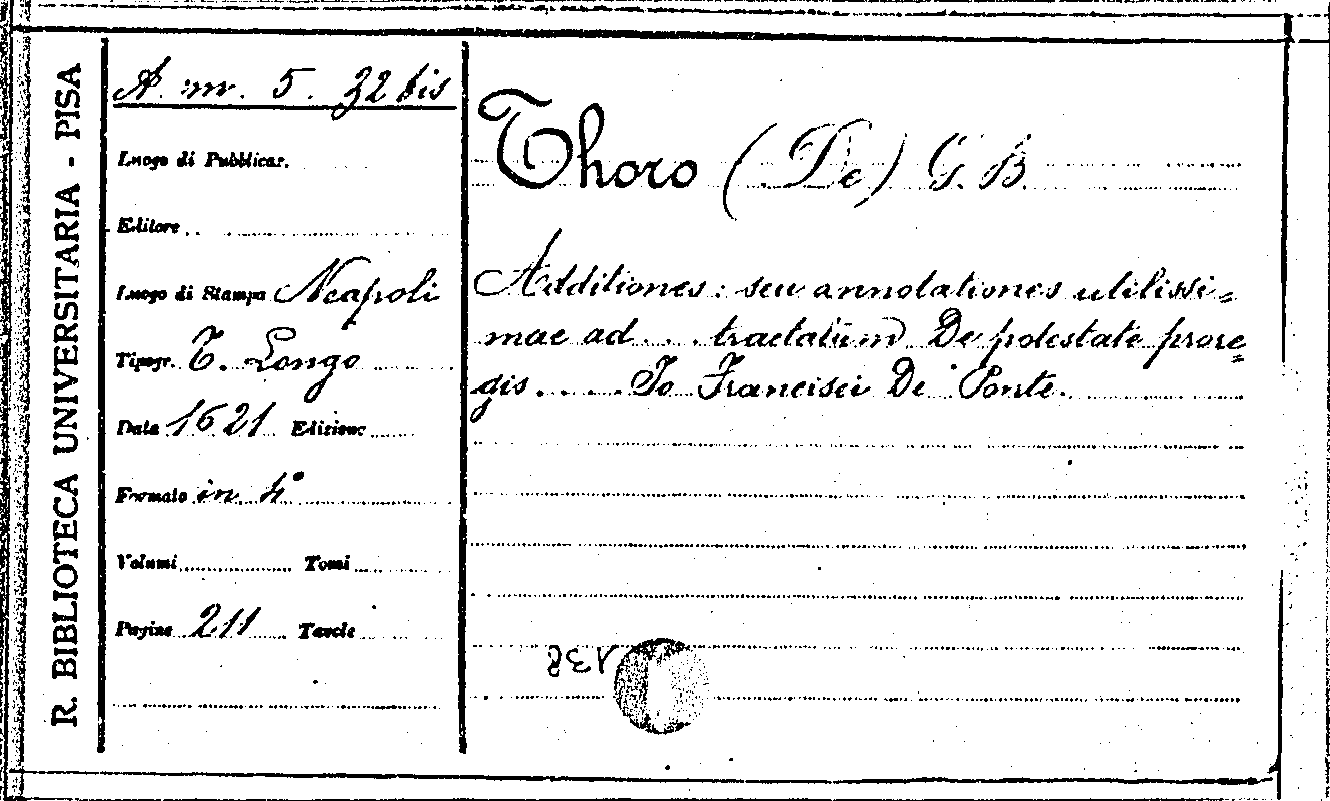 R. BIBLIOTECA UNIVERSITARIA - PISA
A. m. 5. 32 bis
Luogo di Pubblicaz.
Editore
Luogo di Stampa Neapoli
Tipogr. T. Longo
Data 1621 Edizione
Formato in 4°
Volumi Tomi
Pagine 211 Tavole
Thoro (De) G. B.
Additiones: seu annotationes utilissi=
mae ad . . . tractatum De potestate prore=
gis . . . . Io Francisci De Ponte.
138